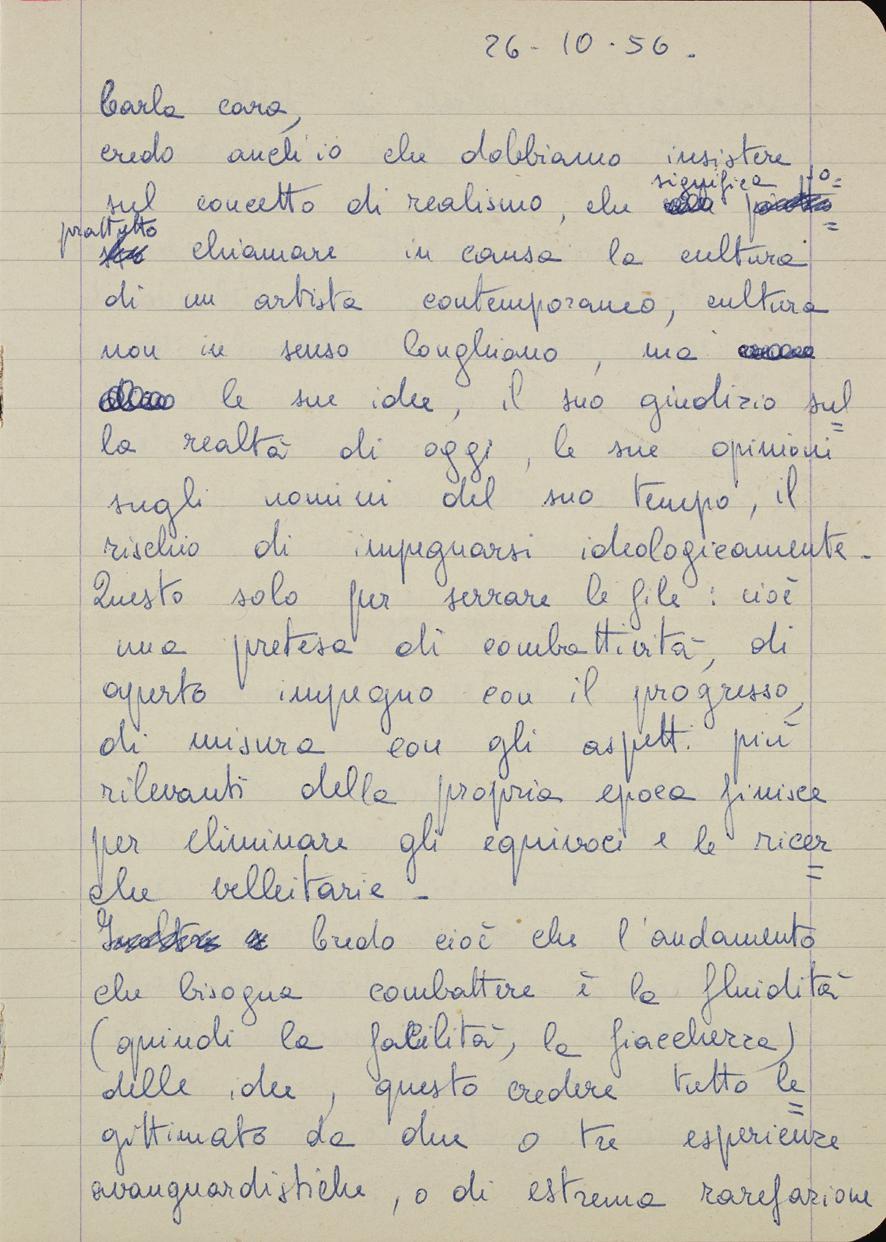 26-10-56.
Carla cara,
credo anch'io che dobbiamo insistere
sul concetto di realismo, che significa
prattutto chiamare in causa la cultura
di un artista contemporaneo, cultura
non in senso longhiano, ma
le sue idee, il suo giudizio sul=
la realtà di oggi, le sue opinioni
sugli uomini del suo tempo, il
rischio di impegnarsi ideologicamente.
Questo solo per serrare le file: cioè
una pretesa di combattività, di
aperto impegno con il progresso,
di misura con gli aspetti più
rilevanti della propria epoca finisce
per eliminare gli equivoci e le ricer=
che velleitarie.
Credo cioè che l'andamento
che bisogna combattere è la fluidità
(quindi la facilità, la fiacchezza)
delle idee, questo credere tutto le=
gittimato da due o tre esperienze
avanguardistiche, o di estrema rarefazione